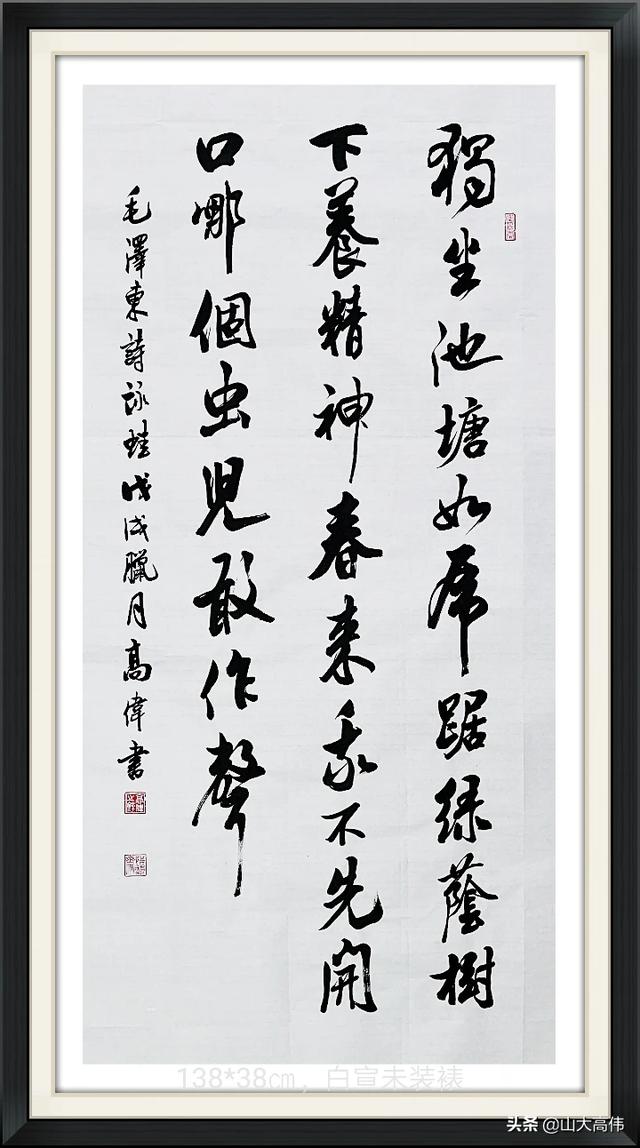 獨坐池塘如虎踞綠蔭樹
下養精神春来我不先開
口哪個虫児敢作聲
毛澤東詩詠蛙戊戌臘月高偉書
138*38cm，白宣未装裱
头条 @山大高伟